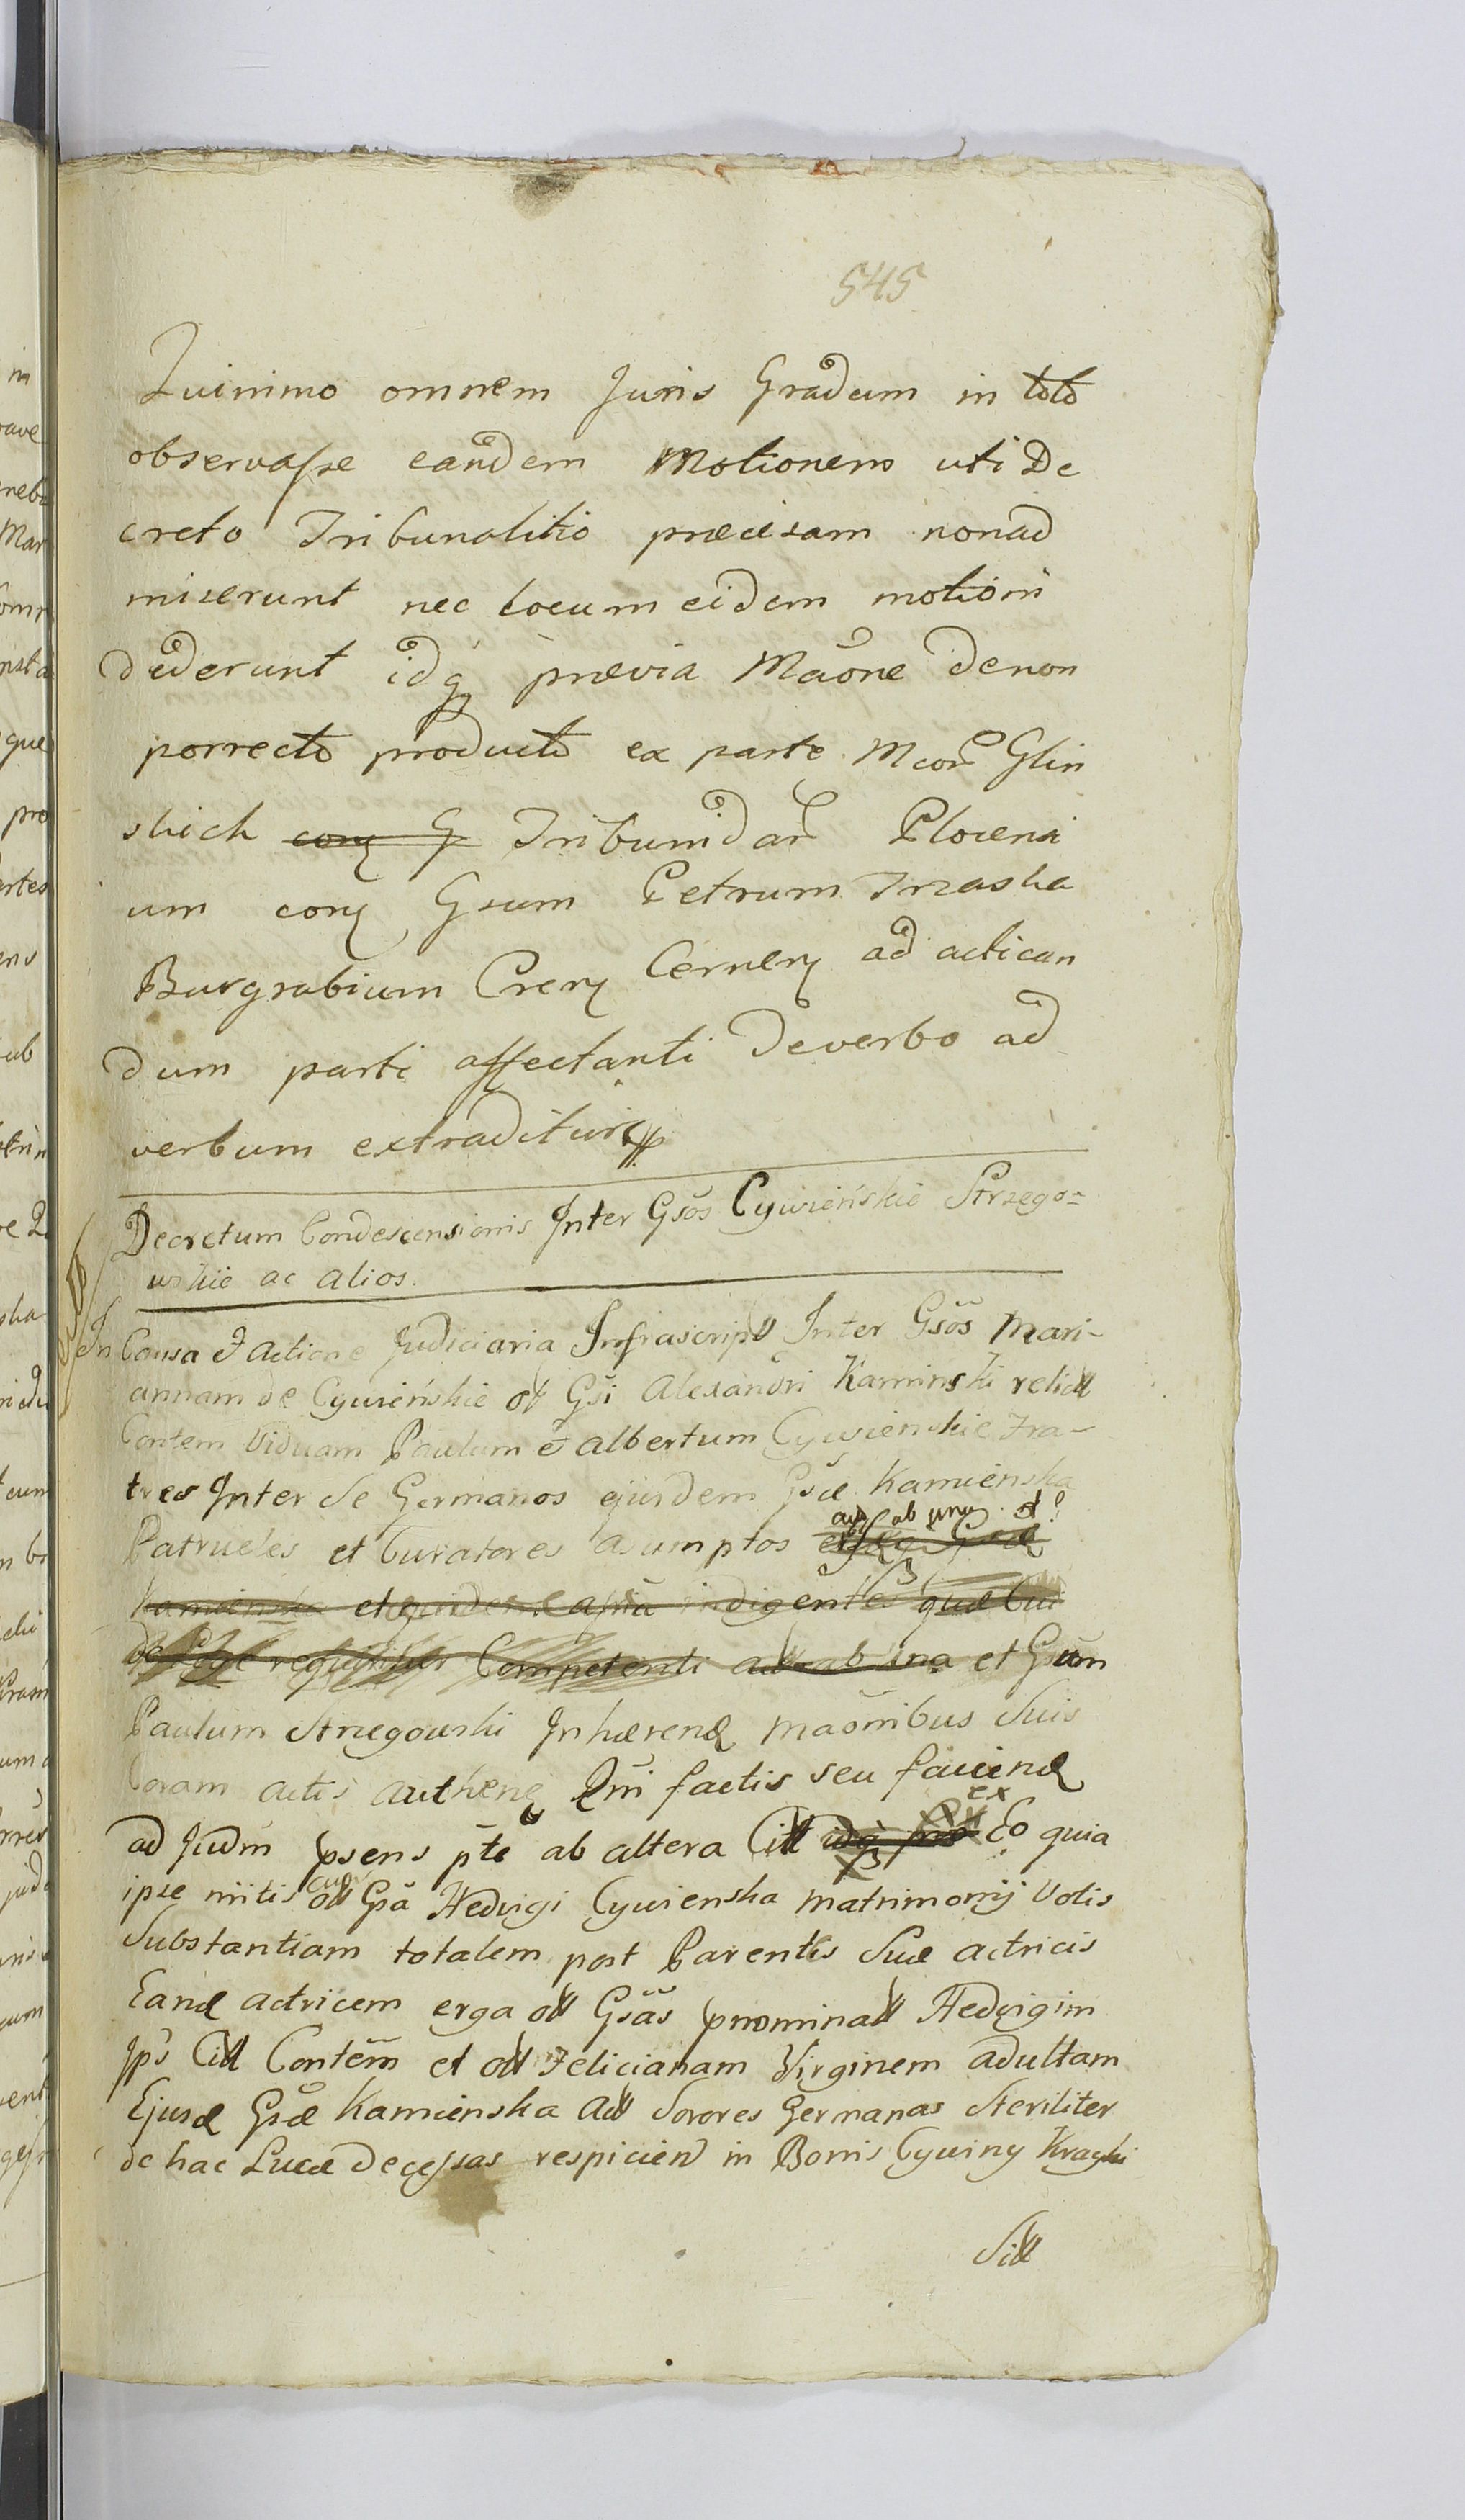 545
Quinimo omnem Juris Gradum in toto
observasse eandem Motionem uti De
creto Tribunalitio præcisam non ad
miserunt nec locum eidem motioni
dederunt idq prævia Mãone de non
porrecto producto ex parte Mcor Glin
skich cor G Tribunidar Plocensi
um cor Gsum Petrum Trzaska
Burgrabium Crer Cerner ad actican
dum parti affectanti de verbo ad
verbum extraditur
Decretum Condescensionis Inter Gsõs Cywieńskie Strzego=
wskie ac alios.
In Causa & Actione Judiciaria Infrascript Inter Gsõs Mari-
annam de Cywieńskie ol Gsi Alexandri Kaminski relict
Contem Viduam Paulum & Albertum Cywienskie Fra-
tres Inter Se Germanos ejusdem Gsæ Kamienska
act ab una et
Patrueles et Curatores asumptos
Kamienska et indigentes quæ Cui
de Lege Competenti act ab una et Gsum
Paulum Strzegowski Inhærend Maõnibus Suis
Coram actis authen Qni factis seu faciend
ex
ad Judm psens pte ab altera Citt Eo quia
cum
ipse initis olt Gsa Hedvigi Cywienska Matrimonij Votis
Substantiam totalem post Parentes Suæ actricis
Eand actricem erga olt Gsãs prnominatt Hedvigim
Ips Citt Contem et olt Felicianam Virginem adultam
Ejusd Gsæ Kamienska Act Sorores Germanas Steriliter
de hac Luce decessas respicien in Bonis Cywiny Krayki
Sitt